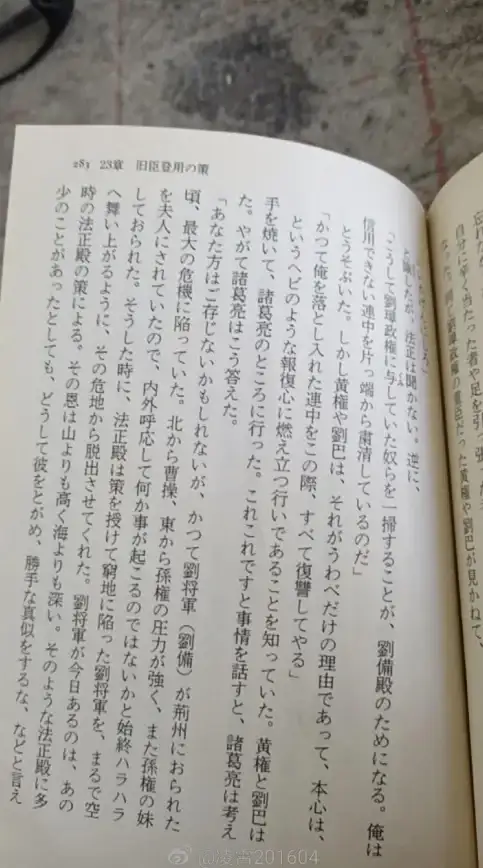 忘れなか
自分に辛く当たった者や足を引っ張
なった。劉璋政権の重臣だった黄権や劉巴が見かねて、
と諫したが、法正は聞かない。逆に、
「こうして劉璋政権に与していた奴らを一掃することが、劉備殿のためになる。俺は
信用できない連中を片っ端から粛清しているのだ」
とうそぶいた。しかし黄権や劉巴は、それがうわべだけの理由であって、本心は、
「かつて俺を落とし入れた連中をこの際、すべて復讐してやる」
というヘビのような報復心に燃え立つ行いであることを知っていた。黄権と劉巴は
手を焼いて、諸葛亮のところに行った。これこれですと事情を話すと、諸葛亮は考え
た。やがて諸葛亮はこう答えた。
「あなた方はご存じないかもしれないが、かつて劉将軍（劉備）が荊州におられた
頃、最大の危機に陥っていた。北から曹操、東から孫権の圧力が強く、また孫権の妹
を夫人にされていたので、内外呼応して何か事が起こるのではないかと始終ハラハラ
しておられた。そうした時に、法正殿は策を授けて窮地に陥った劉将軍を、まるで空
へ舞い上がるように、その危地から脱出させてくれた。劉将軍が今日あるのは、あの
時の法正殿の策による。その恩は山よりも高く海よりも深い。そのような法正殿に多
少のことがあったとしても、どうして彼をとがめ、勝手な真似をするな、などと言え
281 23章 旧臣登用の策
@凌霄201604